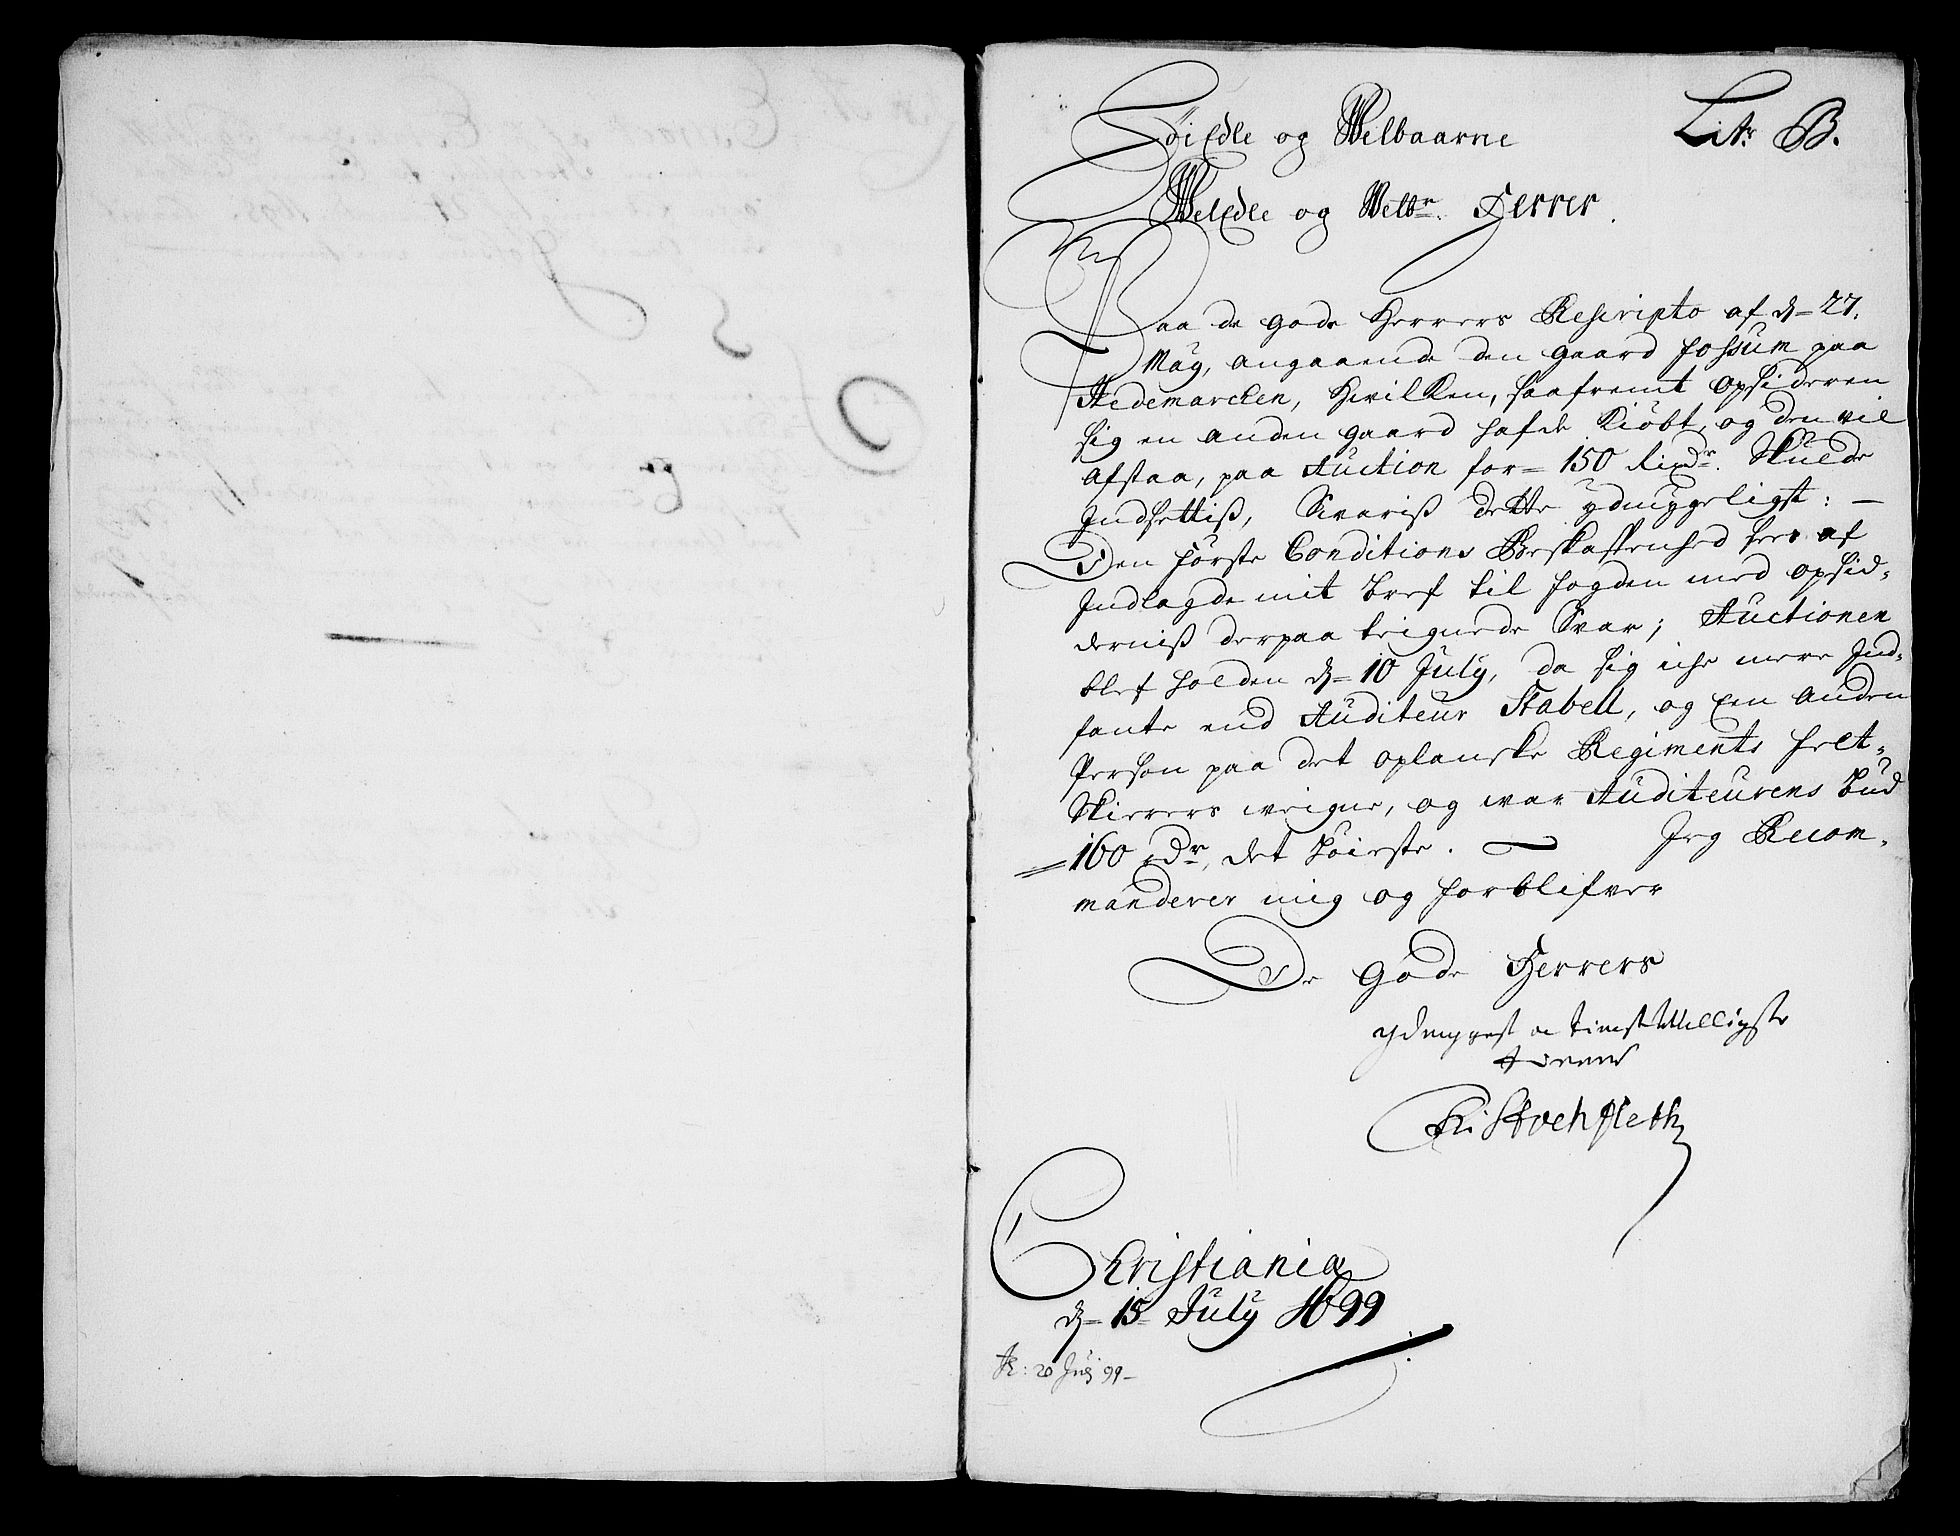 Litr B.
Höi Edle og Welbaarne
WelEdle og Welbr. Herrer.
Paa de gode Herrers Rescripto af d= 27.
May, angaaende den gaard Fossum paa
Hedemarchen, hvilken, saafremt opsideren
sig en anden gaard hafde kiöbt, og den vil
afstaa, paa Auction for= 150 Rixdr. Skulde
Indsettiß, Svariß dette ydmygeligst: —
Den förste Conditions Beskaffenhed sees af
Indlagde mit bref til fogden med opsid=
derniß derpaa teignede Svar; Auctionen
blef holden d= 10 July, da sig iche mere Ind=
fante end Auditeur Stabell, og Een anden
Person paa det oplanske Regiments felt=
Skierers veigne, og war Auditeurens bud
160 rdr, det höieste. — Jeg Recom=
manderer mig og forblifver
De gode Herrers
ydmygest og tienstwilligste
tienner
Stochfleth
Christiania
d= 15 July 1699
20 July 99—